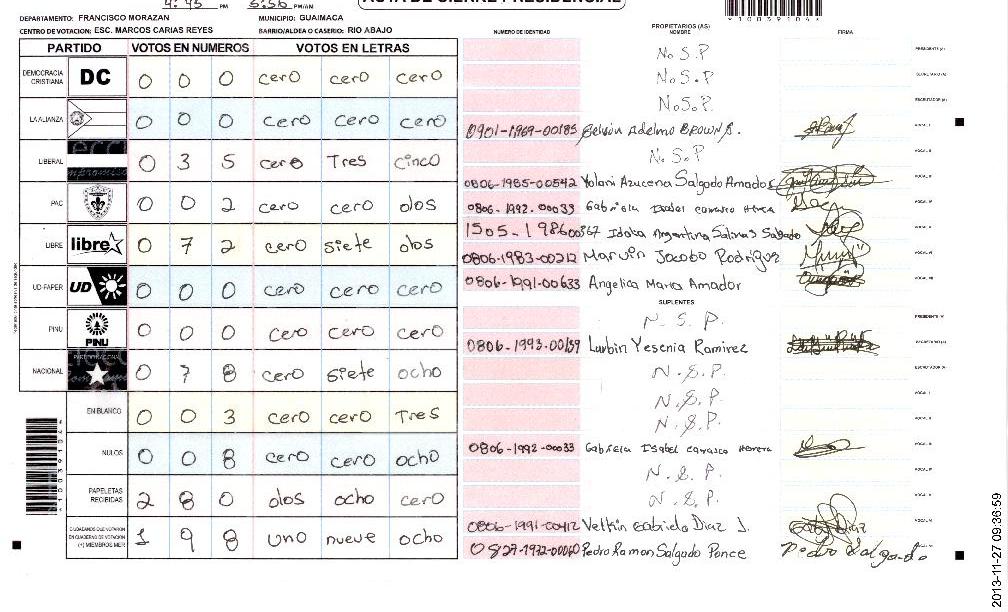 4:45 PM 5:56 PM/AM ACTA DE CIERRE PRESIDENCIAL
*10039104*
DEPARTAMENTO: FRANCISCO MORAZAN MUNICIPIO: GUAIMACA
CENTRO DE VOTACION: ESC. MARCOS CARIAS REYES BARRIO/ALDEA O CASERIO: RIO ABAJO
PARTIDO VOTOS EN NUMEROS VOTOS EN LETRAS
DEMOCRACIA CRISTIANA DC 0 0 0 cero cero cero
LA ALIANZA 0 0 0 cero cero cero
LIBERAL 0 3 5 cero Tres cinco
PAC 0 0 2 cero cero dos
LIBRE libre 0 7 2 cero siete dos
UD-FAPER UD 0 0 0 cero cero cero
PINU PINU 0 0 0 cero cero cero
NACIONAL 0 7 8 cero siete ocho
EN BLANCO 0 0 3 cero cero Tres
NULOS 0 0 8 cero cero ocho
PAPELETAS RECIBIDAS 2 8 0 dos ocho cero
CIUDADANOS QUE VOTARON EN CUADERNO DE VOTACION (+) MIEMBROS MER 1 9 8 uno nueve ocho
NUMERO DE IDENTIDAD PROPIETARIOS (AS) NOMBRE FIRMA
N.S.P PRESIDENTE (A)
N.S.P SECRETARIO (A)
N.S.P. ESCRUTADOR (A)
0901-1969-00185 Adelmo BROWN VOCAL I
N.S.P VOCAL II
0806-1985-00542 Yolani Azucena Salgado Amador VOCAL III
0806-1992-00033 Gabriela Isabel carrasco Herrera VOCAL IV
1505-1986 Argentina Salinas Salgado VOCAL V
0806-1983-00212 Marvin Jacobo Rodriguez VOCAL VI
0806-1991-00633 Angelica Maria Amador VOCAL VII
SUPLENTES
N.S.P. PRESIDENTE (A)
0806-1993-00159 Lurbin Yesenia Ramirez SECRETARIO (A)
N.S.P. ESCRUTADOR (A)
N.S.P. VOCAL I
N.S.P. VOCAL II
0806-1992-00033 Gabriela Isabel carrasco Herrera VOCAL III
N.S.P. VOCAL IV
N.S.P. VOCAL V
0806-1991-00412 Velkin Gabriela Diaz J. VOCAL VI
0827-1972-00060 Pedro Ramon Salgado Ponce Pedro Salgado
2013-11-27 09:36:59